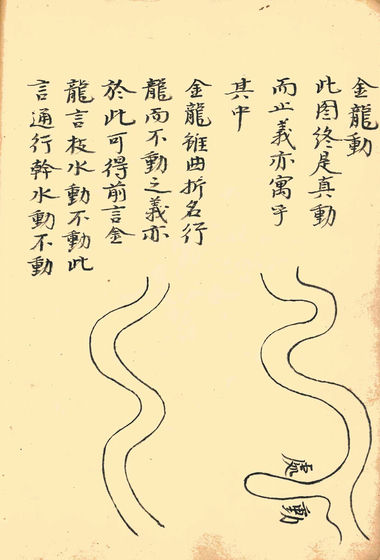 金龍動
此图終是真動
而止義亦寓乎
其中
金龍雖曲折名行
龍而不動之義亦
於此可得前言金
龍言枝水動不動此
言通行幹水動不動
動處